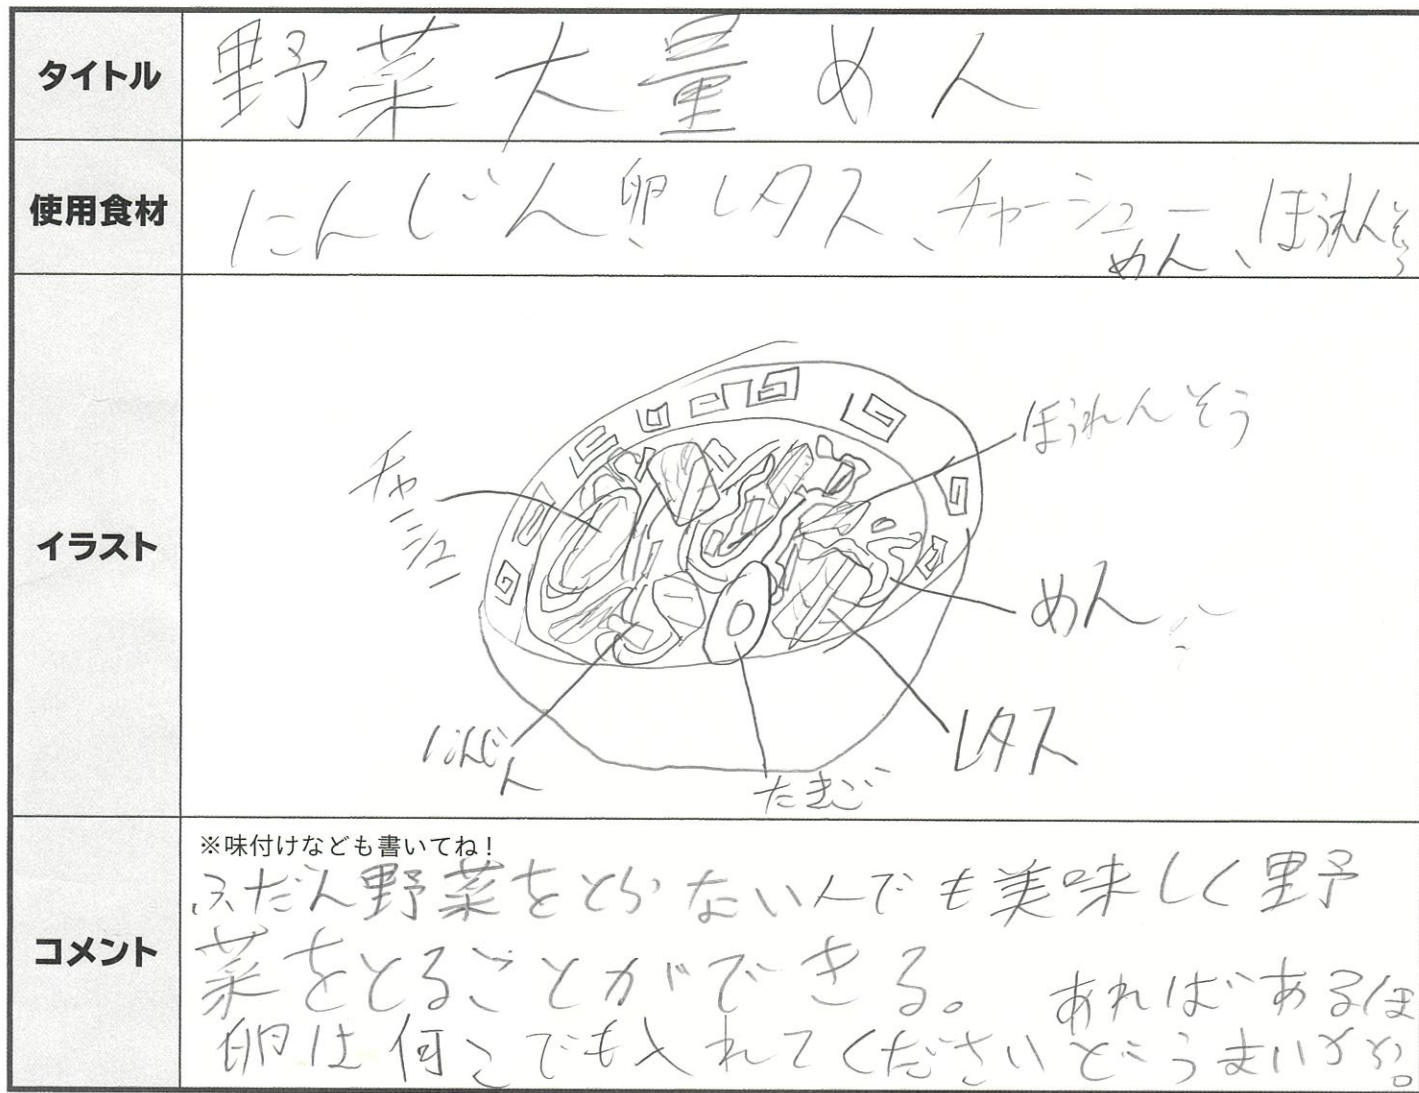 タイトル
野菜大量めん
使用食材
にんじん、卵、レタス、チャーシュー
めん、ほうれんそう
イラスト
チャーシュー
ほうれんそう
めん
レタス
にんじん
たまご
コメント
※味付けなども書いてね！
ふだん野菜をとらない人でも美味しく野
菜をとることができる。
卵は何こでも入れてください
あればあるほ
どうまいから。